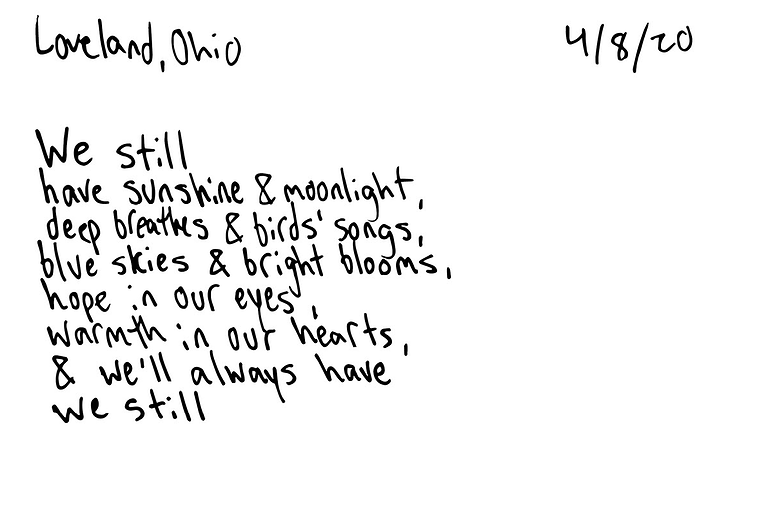 Loveland, Ohio 4/8/20
We still
have sunshine & moonlight,
deep breathes & birds' songs,
blue skies & bright blooms,
hope in our eyes,
warmth in our hearts,
& we'll always have
we still